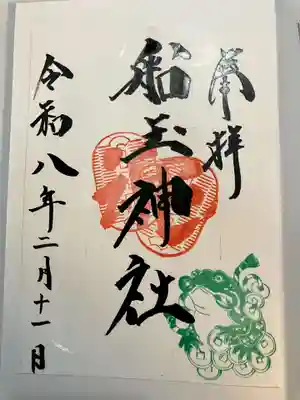 奉拝
船玉神社
令和八年二月十一日